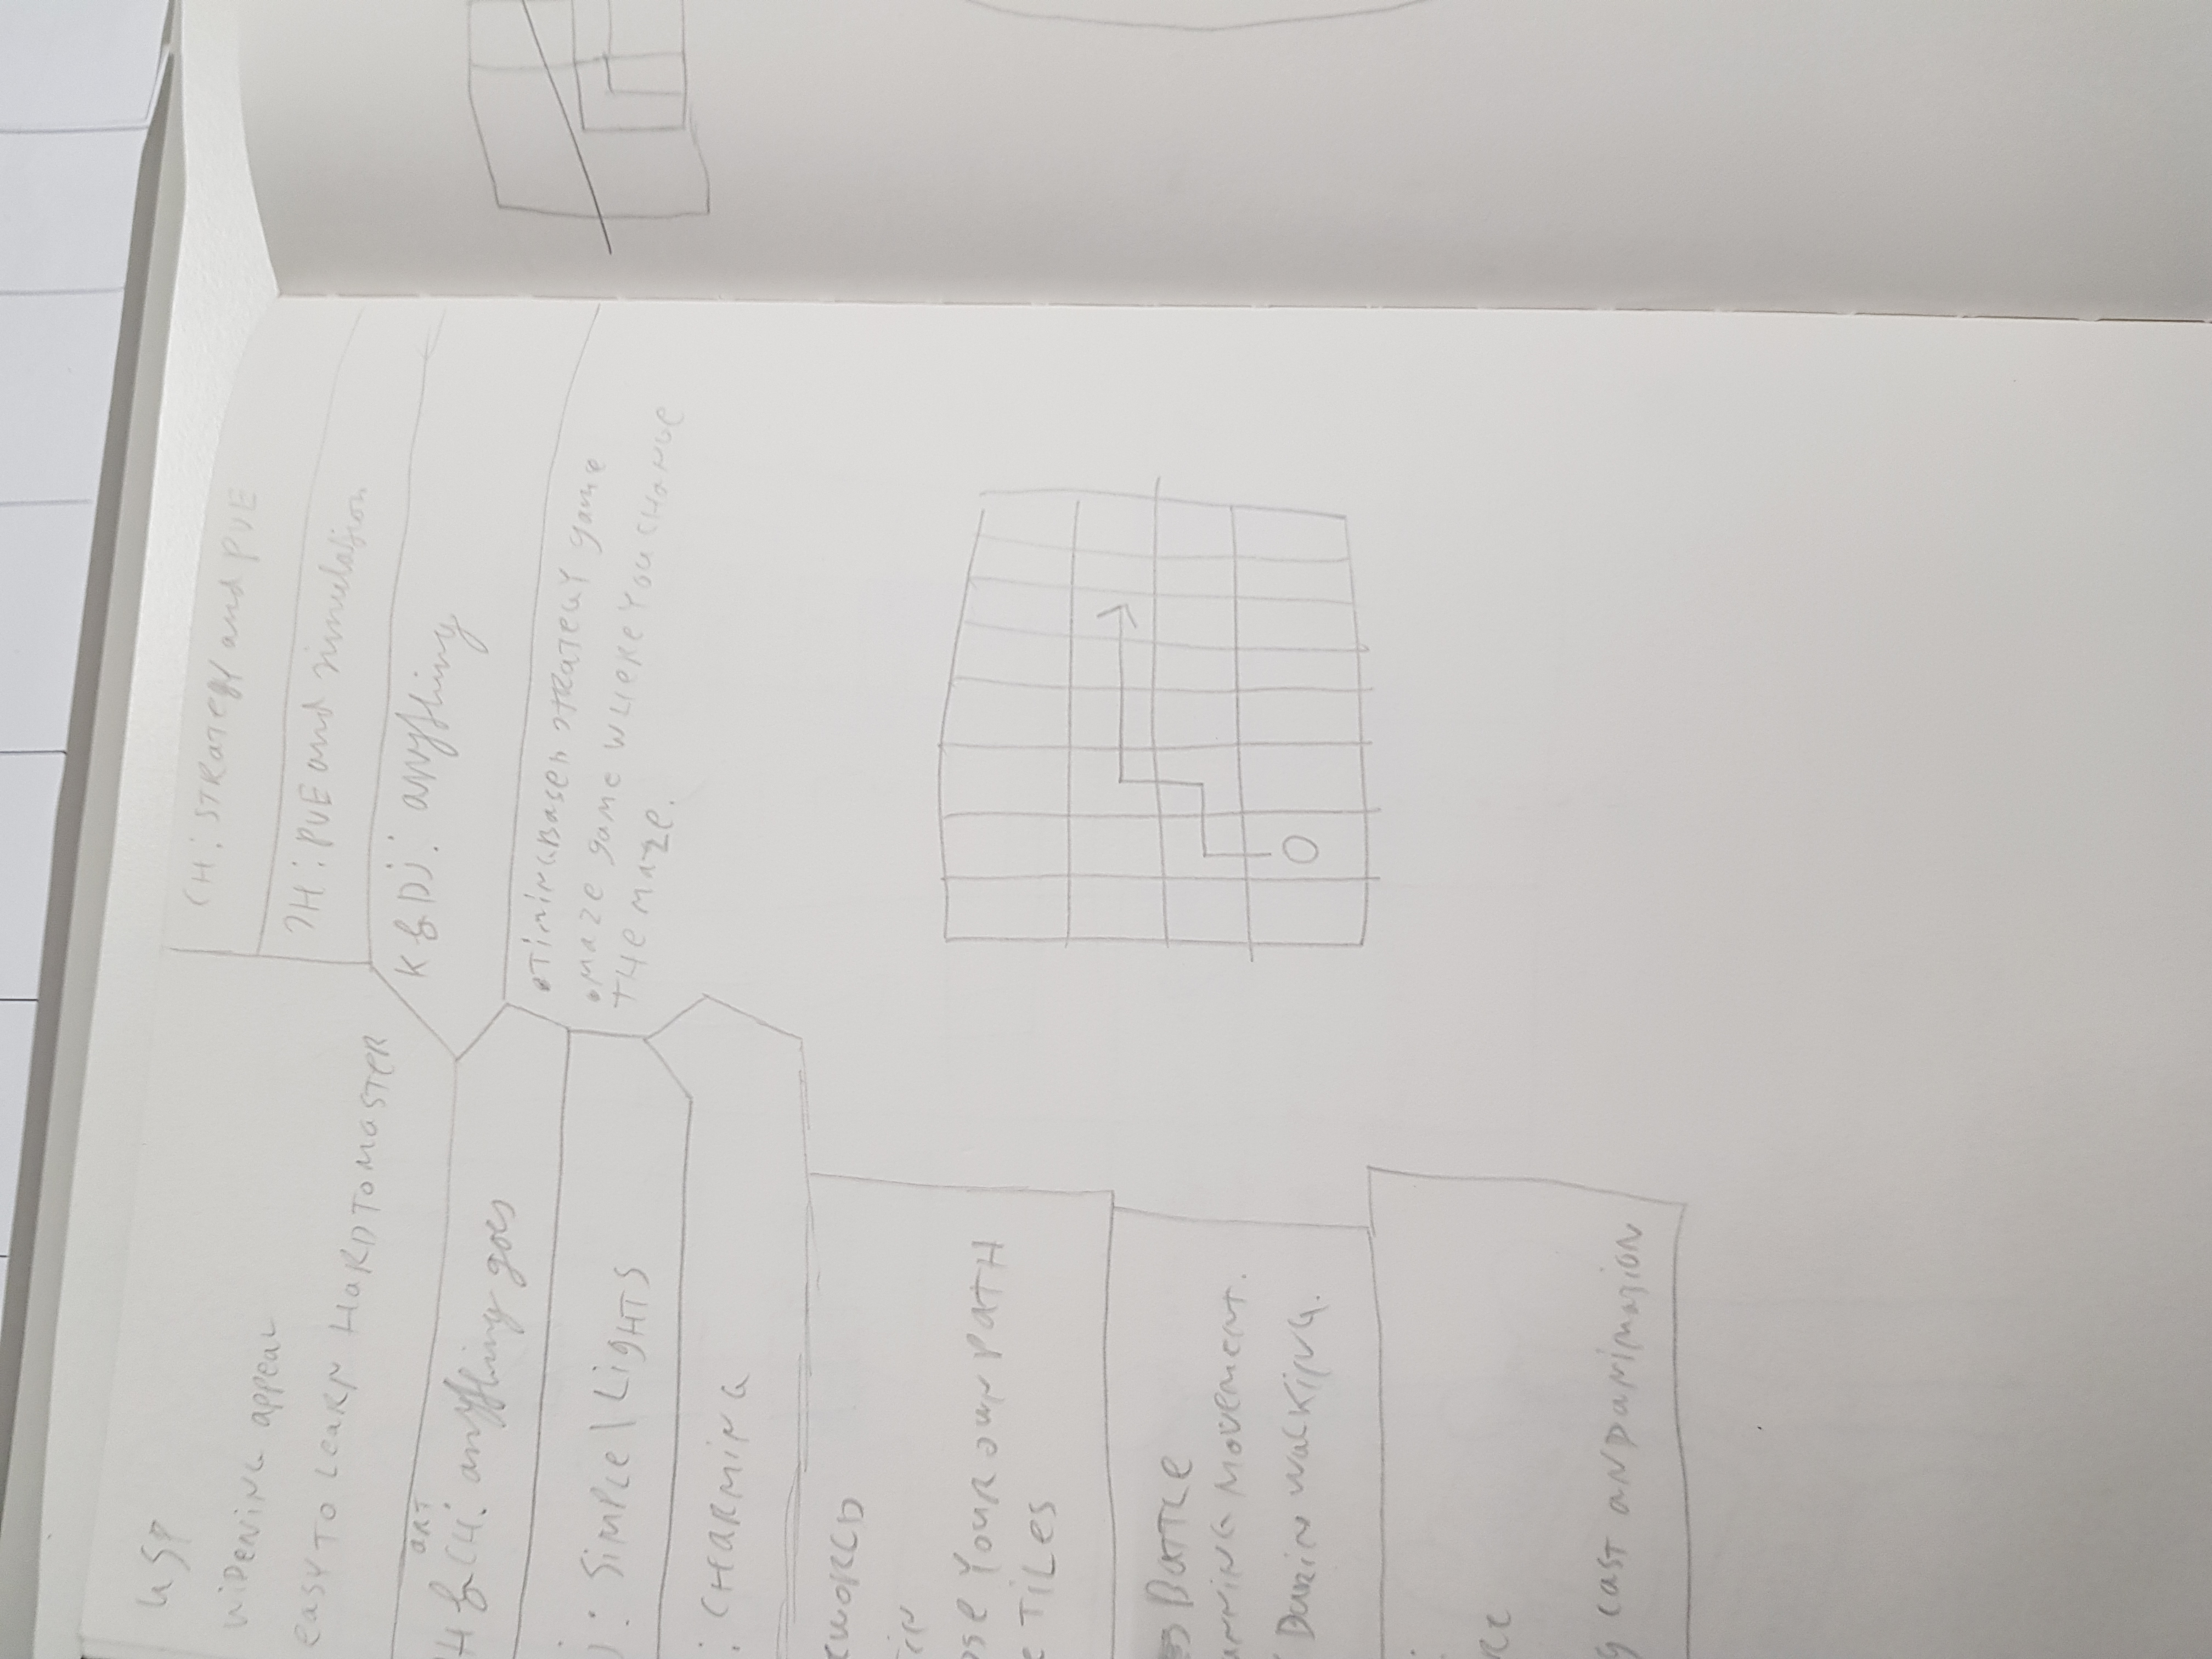 USP
WIDENING appeal
easy TO LEARN HARD TO MASTER
ART
H & CH: anything goes
j: SIMPLE\LIGHTS
: CHARMING
WORLD
OSE YOUR OWN PATH
TILES
BATTLE
ANNING MOVEMENT.
DURIN WALKING.
CAST AND ANIMAZION
CH: STRATEGY and PVE
JH: PVE and simulation
K & Dj: anything
•TIMINGBASED STRATEGY game
•MAZE game WHERE YOU CHANGE
THE MAZE.